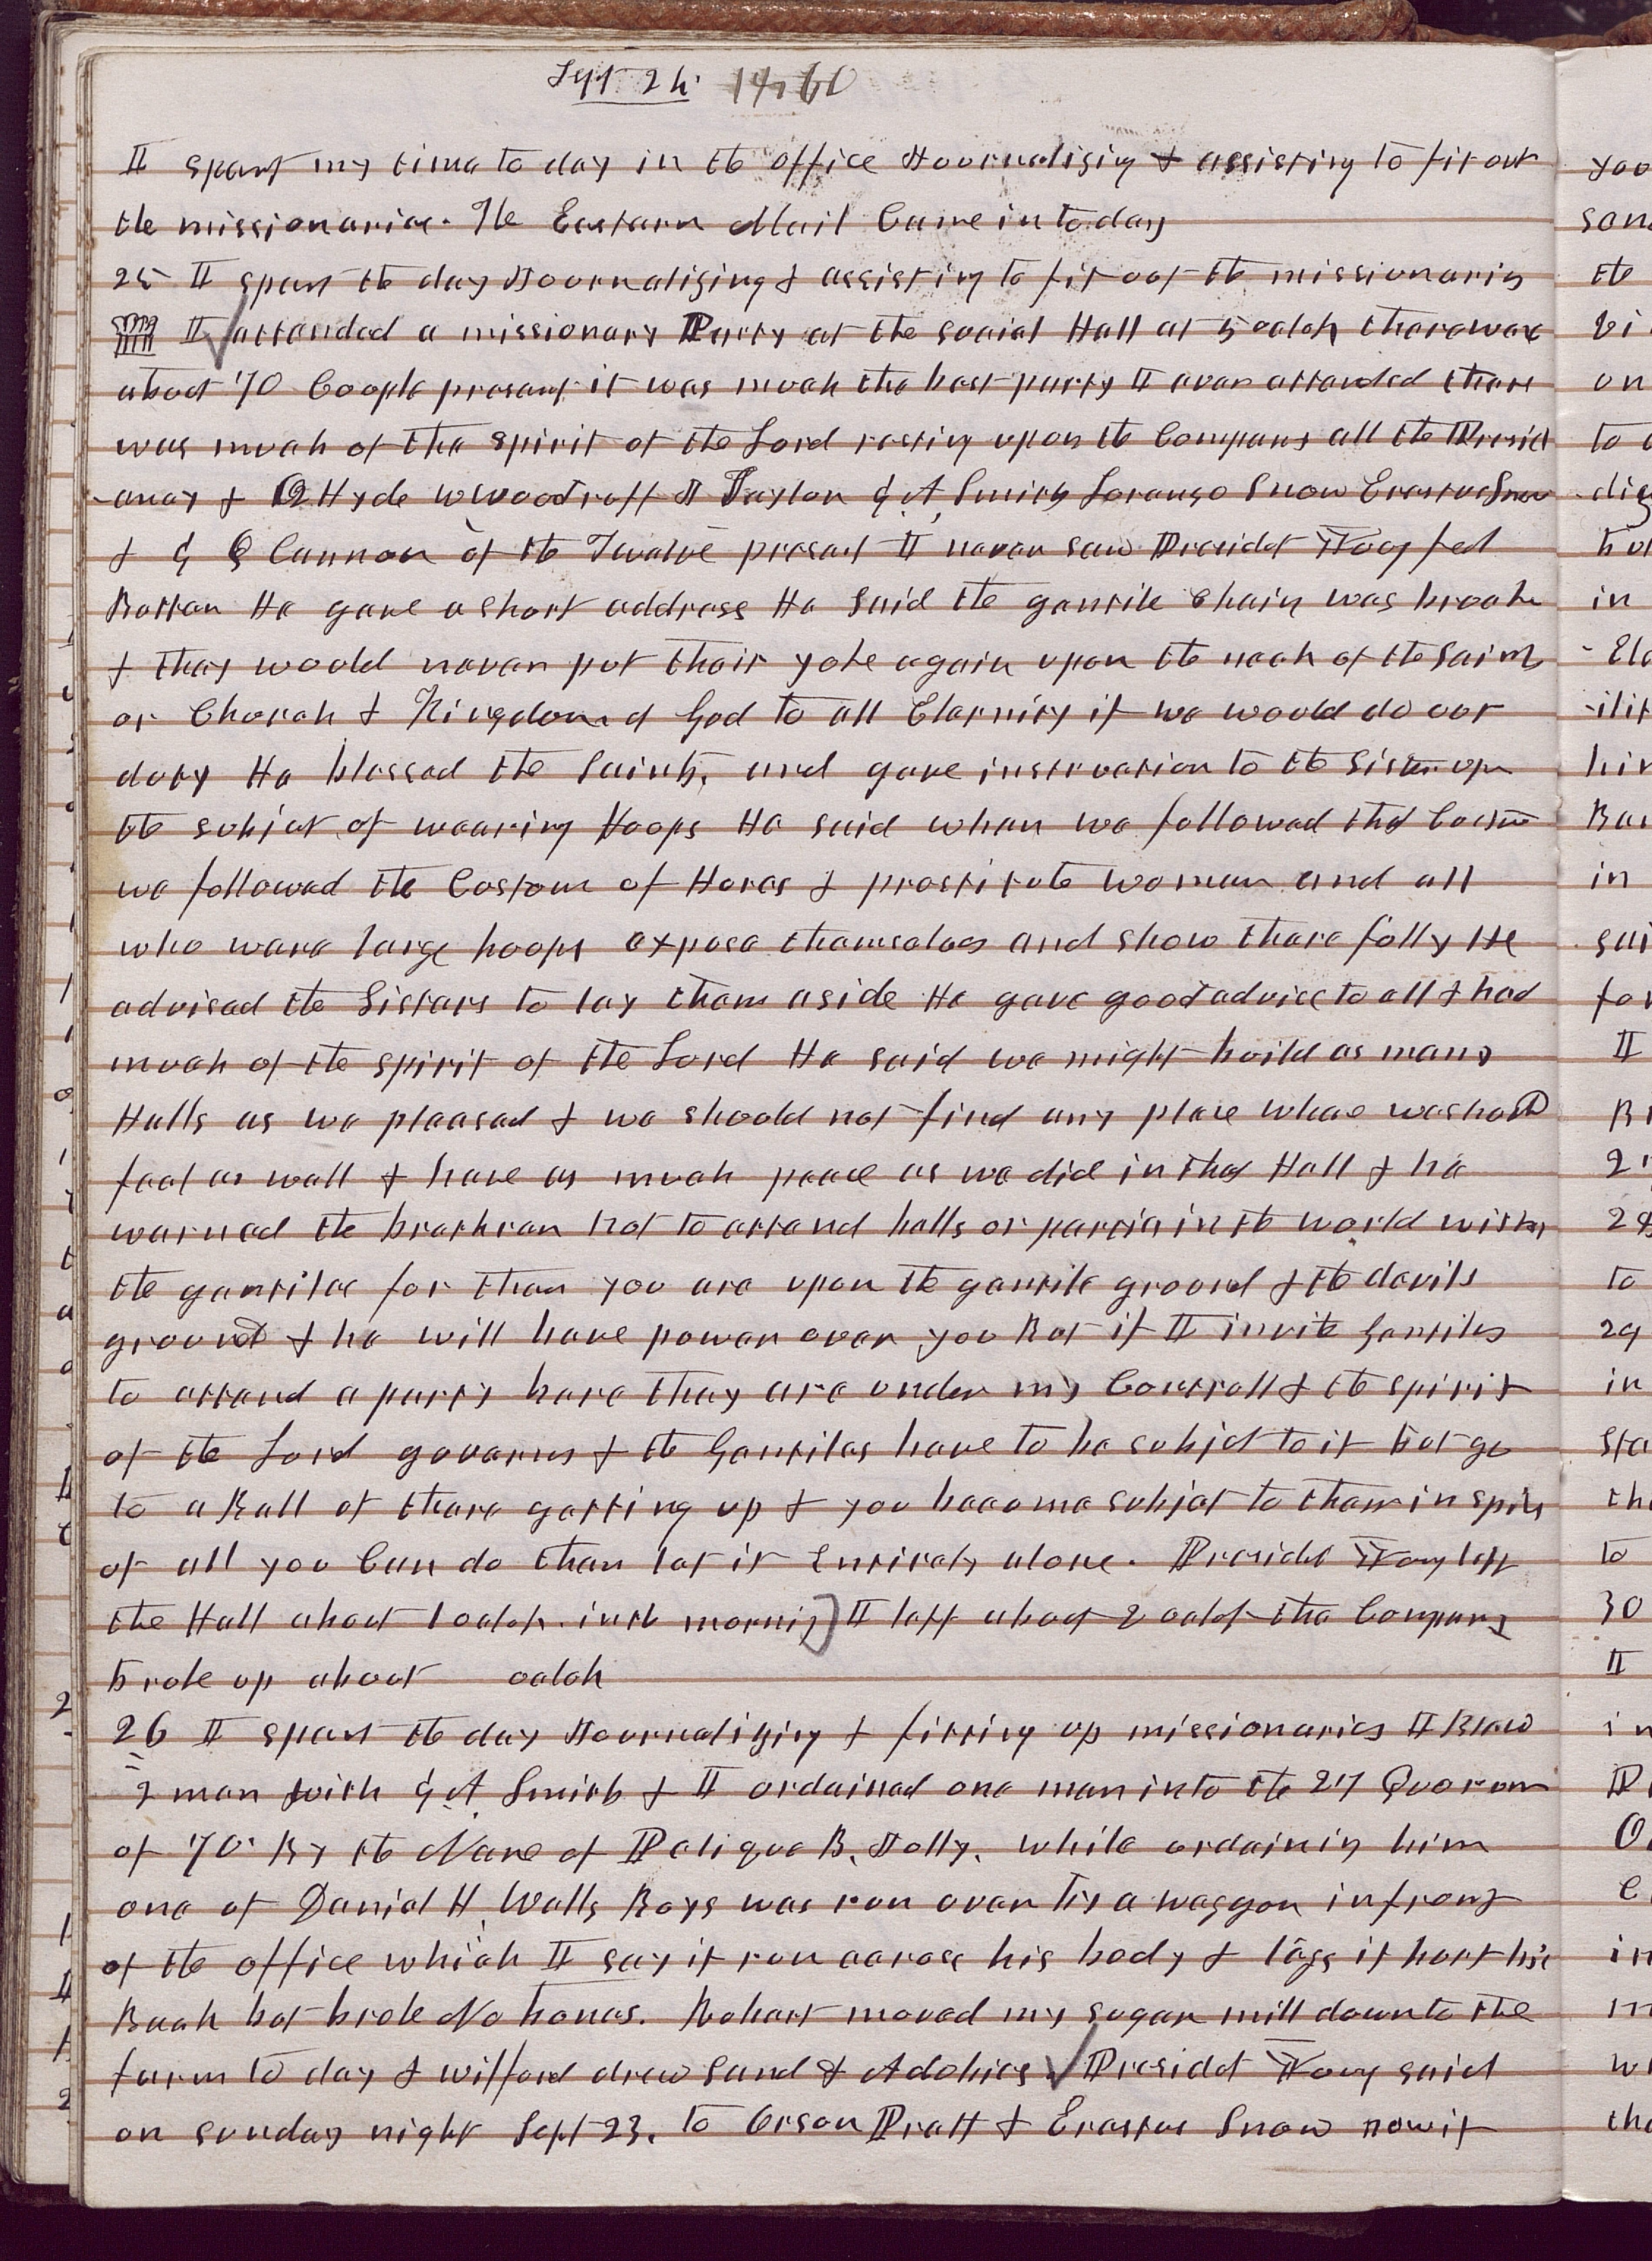 Sept 24. 1860
I spent my time to day in the office Journalising & assisting to fit out
the missionaries. The Eastern Mail Came in to day
25 I spent the day Journalizing & assisting to fit out the missionaries
I attended a missionary Party at the social Hall at 5 oclok there were
about 70 Couple present it was much the best party I ever attended there
was much of the spirit of the Lord resting upon the Company all the Presid
-ency & O Hyde W Woodruff J Taylor G A Smith Lorenzo Snow Erastus Snow
& G Q Cannon of the Twelve present I never saw Presidet Young feel
Better He gave a short address He said the gentile Chain was broake
& they would never put their yoke again upon the neck of the Saints
or Church & Kingdom of God to all Eternity if we would do our
duty He blessed the Saints, and gave instruction to the Sisters upon
the subject of wearing Hoops He said when we followed that Custom
we followed the Custom of Hores & prostitute women and all
who ware large hoops expose themselves and show there folly He
advised the Sisters to lay them aside He gave good advice to all & had
much of the spirit of the Lord He said we might build as many
Halls as we pleased & we should not find any place whare we should
feel as well & have as much peace as we did in that Hall & he
warned the brethren not to attend balls or parties in the world with
the gentiles for then you are upon the gentile ground & the devils
ground & he will have power over you But if I invite Gentiles
to attend a party here they are under my Controll & the spirit
of the Lord governs & the Gentiles have to be subjet to it but go
to a Ball of there getting up & you become subjet to them in spite
of all you Can do then let it Entirely alone. Presidet Young left
the Hall about 1 oclok in the morning I left about 2 oclok the Company
broke up about oclok
26 I spent the day Journalizing & fitting up missionaries I Blessed
2 men with G A Smith & I ordained one man into the 27 Quorum
of 70. By the Name of Pelique B. Jolly. while ordaining him
one of Daniel H. Wells Boys was run over by a waggon in front
of the office which I say it run across his body & legs it hurt his
Back but broke No bones. Robert moved my sugar mill down to the
farm to day & Wilford drew sand & Adobies Presidet Young said
on sunday night Sept 23. to Orson Pratt & Erastus Snow now if